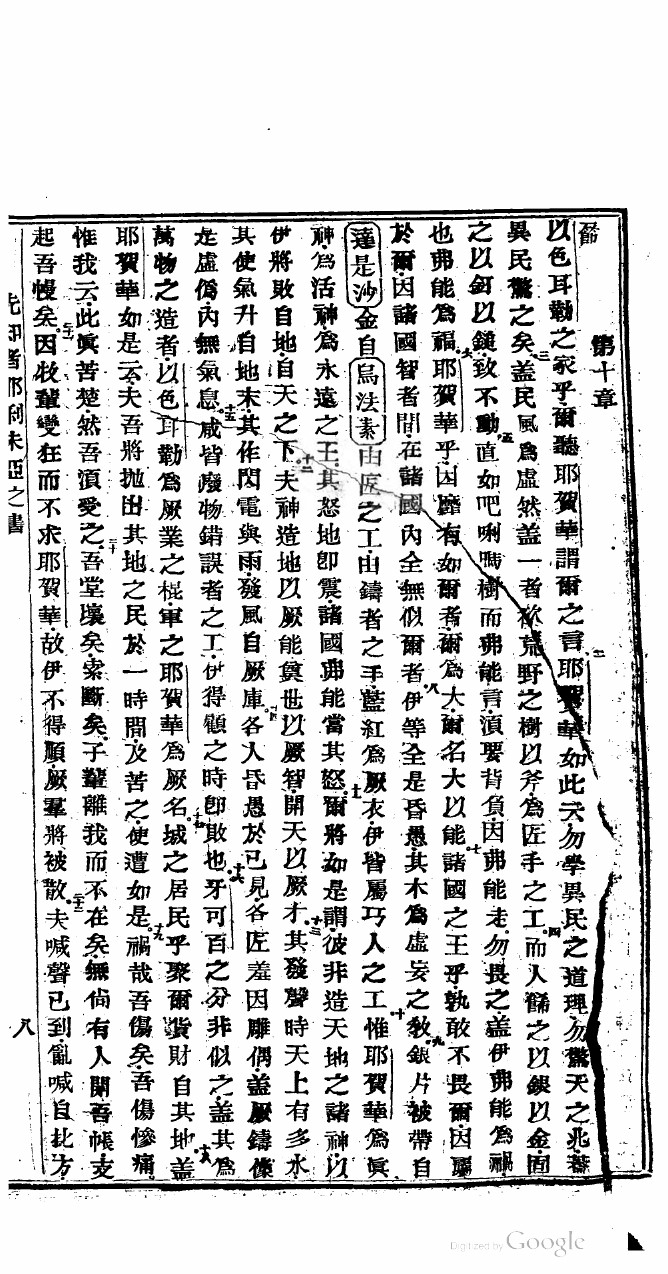 第十章
以色耳勒之家乎爾聽耶賀華謂爾之言二耶賀華如此云勿學異民之道理勿驚天之兆蓋
異民驚之矣三蓋民風為虛然蓋一者砍荒野之樹以斧為匠手之工四而人飾之以銀以金固
之以釘以鎚致不動五直如吧唎嗎樹而弗能言湏要背負因弗能走勿畏之蓋伊弗能為禍
也弗能為福六耶賀華乎因靡有如爾者爾為大爾名大以能七諸國之王乎孰敢不畏爾因屬
於爾因諸國智者間在諸國內全無似爾者八伊等全是昏愚其木為虛妄之教九銀片被帶自
達是沙金自烏法素由匠之工由鑄者之手藍紅為厥衣伊皆屬巧人之工十惟耶賀華為眞
神為活神為永遠之王其怒地卽震諸國弗能當其怒十一爾將如是謂彼非造天地之諸神以
伊將敗自地自天之下十二夫神造地以厥能奠世以厥智開天以厥才十三其發聲時天上有多水
其使氣升自地末其作閃電與雨發風自厥庫十四各人昏愚於已見各匠羞因雕偶蓋厥鑄像
是虛僞內無氣息十五咸皆廢物錯誤者之工伊得顧之時卽敗也十六牙可百之分非似之蓋其為
萬物之造者以色耳勒為厥業之棍軍之耶賀華為厥名十七城之居民乎聚爾貨財自其地十八蓋
耶賀華如是云夫吾將拋出其地之民於一時間及苦之使遭如是十九禍哉吾傷矣吾傷慘痛
惟我云此眞苦楚然吾湏受之二十吾堂壞矣索斷矣子輩離我而不在矣無尙有人開吾帳支
起吾幔矣二一因牧輩變狂而不求耶賀華故伊不得順厥羣將被散二二夫喊聲已到亂喊自北方
先知者耶利未亞之書
八
Digitized by Google